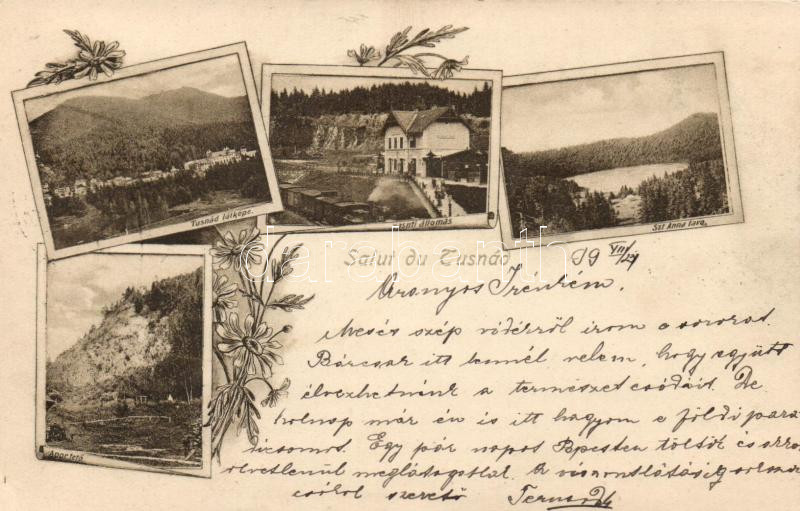 Tusnád látképe.
Vasúti állomás
Szt Anna tava.
Apor tető
Salut du Tusnád
darabanth
19 VII/24
Aranyos Irénkém.
Mesés szép vidékről irom e sorokat.
Bárcsak itt lennél velem, hogy együtt
élvezhetnénk a természet csodáit. De
holnap már én is itt hagyom e földi para-
dicsomot. Egy pár napot Pesten töltök és
meglátogatlak. A viszontlátásig
csókol szerető